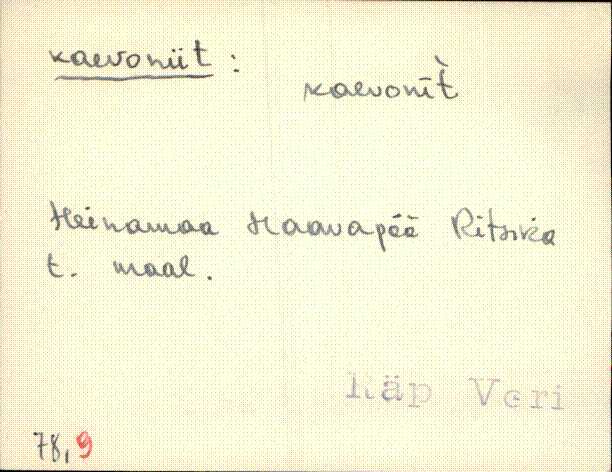 kaevoniit :
kaevonīt̀
Heinamaa Haavapää Ritsika
t. maal.
Räp Veri
78,9